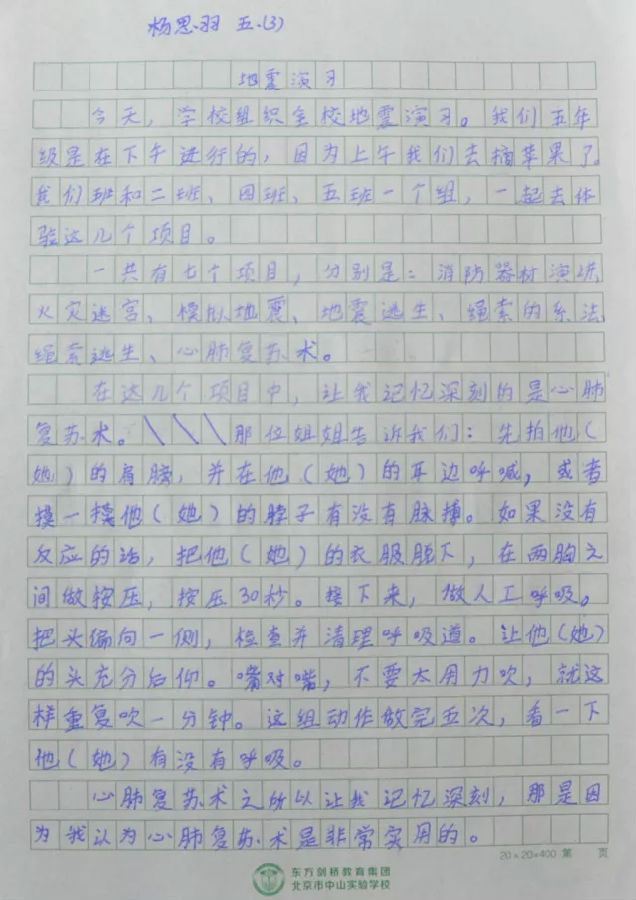 杨思羽 五.(3)
地震演习
今天，学校组织全校地震演习。我们五年
级是在下午进行的，因为上午我们去摘苹果了。
我们班和二班、四班、五班一个组，一起去体
验这几个项目。
一共有七个项目，分别是：消防器材演讲、
火灾迷宫、模拟地震、地震逃生、绳索的系法、
绳索逃生、心肺复苏术。
在这几个项目中，让我记忆深刻的是心肺
复苏术。那位姐姐告诉我们：先拍他（
她）的肩膀，并在他（她）的耳边呼喊，或者
摸一摸他（她）的脖子有没有脉搏。如果没有
反应的话，把他（她）的衣服脱下，在两胸之
间做按压，按压30秒。接下来，做人工呼吸。
把头偏向一侧，检查并清理呼吸道。让他（她）
的头充分后仰。嘴对嘴，不要太用力吹，就这
样重复吹一分钟。这组动作做完五次，看一下
他（她）有没有呼吸。
心肺复苏术之所以让我记忆深刻，那是因
为我认为心肺复苏术是非常实用的。
20×20=400 第 页
东方剑桥教育集团
北京市中山实验学校